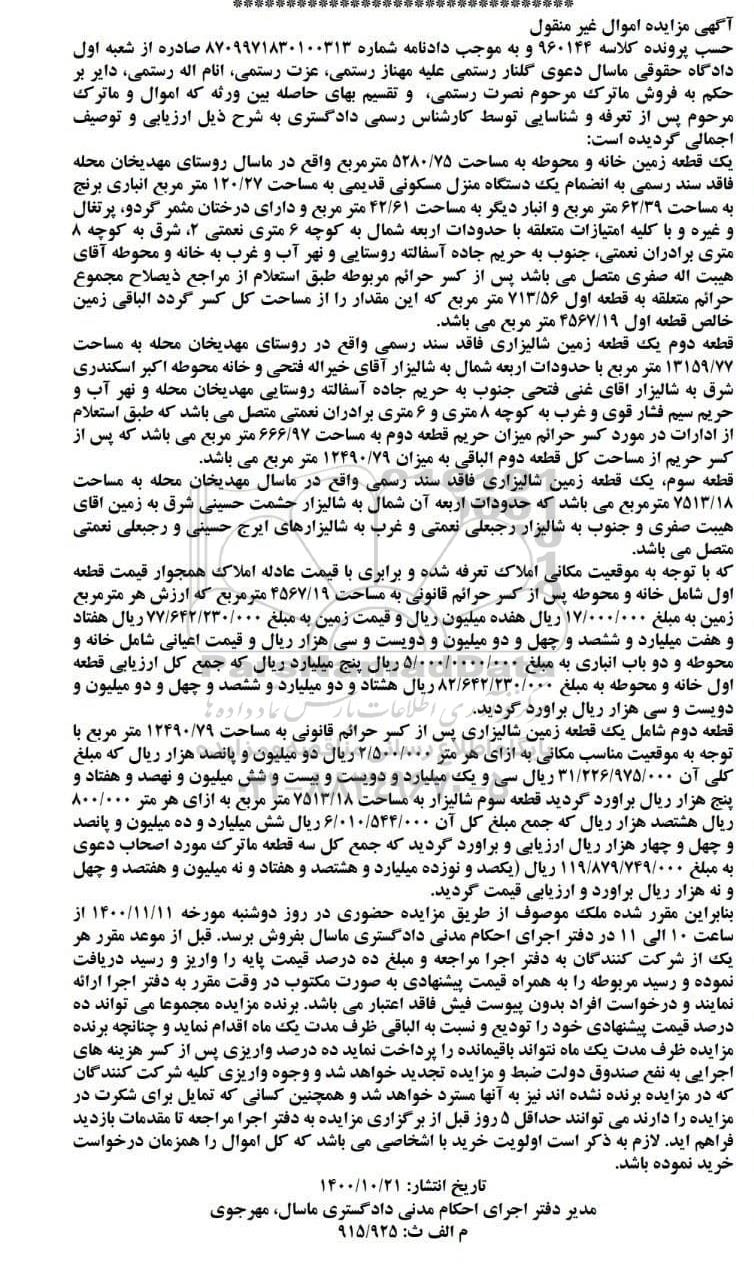 آگهی مزایده اموال غیر منقول
حسب پرونده کلاسه ۹۶۰۱۴۴ و به موجب دادنامه شماره ۸۷۰۹۹۷۱۸۳۰۱۰۰۳۱۳ صادره از شعبه اول
دادگاه حقوقی ماسال دعوی گلنار رستمی علیه مهناز رستمی، عزت رستمی، انام اله رستمی، دایر بر
حکم به فروش ماترک مرحوم نصرت رستمی، و تقسیم بهای حاصله بین ورثه که اموال و ماترک
مرحوم پس از تعرفه و شناسایی توسط کارشناس رسمی دادگستری به شرح ذیل ارزیابی و توصیف
اجمالی گردیده است:
یک قطعه زمین خانه و محوطه به مساحت ۵۲۸۰/۷۵ مترمربع واقع در ماسال روستای مهدیخان محله
فاقد سند رسمی به انضمام یک دستگاه منزل مسکونی قدیمی به مساحت ۱۲۰/۲۷ متر مربع انباری برنج
به مساحت ۶۲/۳۹ متر مربع و انبار دیگر به مساحت ۴۲/۶۱ متر مربع و دارای درختان مثمر گردو، پرتغال
و غیره و با کلیه امتیازات متعلقه با حدودات اربعه شمال به کوچه ۶ متری نعمتی ۲، شرق به کوچه ۸
متری برادران نعمتی، جنوب به حریم جاده آسفالته روستایی و نهر آب و غرب به خانه و محوطه آقای
هیبت اله صفری متصل می باشد پس از کسر حرائم مربوطه طبق استعلام از مراجع ذیصلاح مجموع
حرائم متعلقه به قطعه اول ۷۱۳/۵۶ متر مربع که این مقدار را از مساحت کل کسر گردد الباقی زمین
خالص قطعه اول ۴۵۶۷/۱۹ متر مربع می باشد.
قطعه دوم یک قطعه زمین شالیزاری فاقد سند رسمی واقع در روستای مهدیخان محله به مساحت
۱۳۱۵۹/۷۷ متر مربع با حدودات اربعه شمال به شالیزار آقای خیراله فتحی و خانه محوطه اکبر اسکندری
شرق به شالیزار اقای غنی فتحی جنوب به حریم جاده آسفالته روستایی مهدیخان محله و نهر آب و
حریم سیم فشار قوی و غرب به کوچه ۸ متری و ۶ متری برادران نعمتی متصل می باشد که طبق استعلام
از ادارات در مورد کسر حرائم میزان حریم قطعه دوم به مساحت ۶۶۶/۹۷ متر مربع می باشد که پس از
کسر حریم از مساحت کل قطعه دوم الباقی به میزان ۱۲۴۹۰/۷۹ متر مربع می باشد.
قطعه سوم، یک قطعه زمین شالیزاری فاقد سند رسمی واقع در ماسال مهدیخان محله به مساحت
۷۵۱۳/۱۸ مترمربع می باشد که حدودات اربعه آن شمال به شالیزار حشمت حسینی شرق به زمین اقای
هیبت صفری و جنوب به شالیزار رجبعلی نعمتی و غرب به شالیزارهای ایرج حسینی و رجبعلی نعمتی
متصل می باشد.
که با توجه به موقعیت مکانی املاک تعرفه شده و برابری با قیمت عادله املاک همجوار قیمت قطعه
اول شامل خانه و محوطه پس از کسر حرائم قانونی به مساحت ۴۵۶۷/۱۹ مترمربع که ارزش هر مترمربع
زمین به مبلغ ۱۷/۰۰۰/۰۰۰ ریال هفده میلیون ریال و قیمت زمین به مبلغ ۷۷/۶۴۲/۲۳۰/۰۰۰ ریال هفتاد
و هفت میلیارد و ششصد و چهل و دو میلیون و دویست و سی هزار ریال و قیمت اعیانی شامل خانه و
محوطه و دو باب انباری به مبلغ ۵/۰۰۰/۰۰۰۰/۰۰۰ ریال پنج میلیارد ریال که جمع کل ارزیابی قطعه
اول خانه و محوطه به مبلغ ۸۲/۶۴۲/۲۳۰/۰۰۰ ریال هشتاد و دو میلیارد و ششصد و چهل و دو میلیون و
دویست و سی هزار ریال براورد گردید.
قطعه دوم شامل یک قطعه زمین شالیزاری پس از کسر حرائم قانونی به مساحت ۱۲۴۹۰/۷۹ متر مربع با
توجه به موقعیت مناسب مکانی به ازای هر متر ۲/۵۰۰/۰۰۰ ریال دو میلیون و پانصد هزار ریال که مبلغ
کلی آن ۳۱/۲۲۶/۹۷۵/۰۰۰ ریال سی و یک میلیارد و دویست و بیست و شش میلیون و نهصد و هفتاد و
پنج هزار ریال براورد گردید قطعه سوم شالیزار به مساحت ۷۵۱۳/۱۸ متر مربع به ازای هر متر ۸۰۰/۰۰۰
ریال هشتصد هزار ریال که جمع مبلغ کل آن ۶/۰۱۰/۵۴۴/۰۰۰ ریال شش میلیارد و ده میلیون و پانصد
و چهل و چهار هزار ریال ارزیابی و براورد گردید که جمع کل سه قطعه ماترک مورد اصحاب دعوی
به مبلغ ۱۱۹/۸۷۹/۷۴۹/۰۰۰ ریال (یکصد و نوزده میلیارد و هشتصد و هفتاد و نه میلیون و هفتصد و چهل
و نه هزار ریال براورد و ارزیابی قیمت گردید.
بنابراین مقرر شده ملک موصوف از طریق مزایده حضوری در روز دوشنبه مورخه ۱۴۰۰/۱۱/۱۱ از
ساعت ۱۰ الی ۱۱ در دفتر اجرای احکام مدنی دادگستری ماسال بفروش برسد. قبل از موعد مقرر هر
یک از شرکت کنندگان به دفتر اجرا مراجعه و مبلغ ده درصد قیمت پایه را واریز و رسید دریافت
نموده و رسید مربوطه را به همراه قیمت پیشنهادی به صورت مکتوب در وقت مقرر به دفتر اجرا ارائه
نمایند و درخواست افراد بدون پیوست فیش فاقد اعتبار می باشد. برنده مزایده مجموعا می تواند ده
درصد قیمت پیشنهادی خود را تودیع و نسبت به الباقی ظرف مدت یک ماه اقدام نماید و چنانچه برنده
مزایده ظرف مدت یک ماه نتواند باقیمانده را پرداخت نماید ده درصد واریزی پس از کسر هزینه های
اجرایی به نفع صندوق دولت ضبط و مزایده تجدید خواهد شد و وجوه واریزی کلیه شرکت کنندگان
که در مزایده برنده نشده اند نیز به آنها مسترد خواهد شد و همچنین کسانی که تمایل برای شکرت در
مزایده را دارند می توانند حداقل ۵ روز قبل از برگزاری مزایده به دفتر اجرا مراجعه تا مقدمات بازدید
فراهم اید. لازم به ذکر است اولویت خرید با اشخاصی می باشد که کل اموال را همزمان درخواست
خرید نموده باشد.
تاریخ انتشار: ۱۴۰۰/۱۰/۲۱
مدیر دفتر اجرای احکام مدنی دادگستری ماسال، مهرجوی
م الف ث: ۹۱۵/۹۲۵